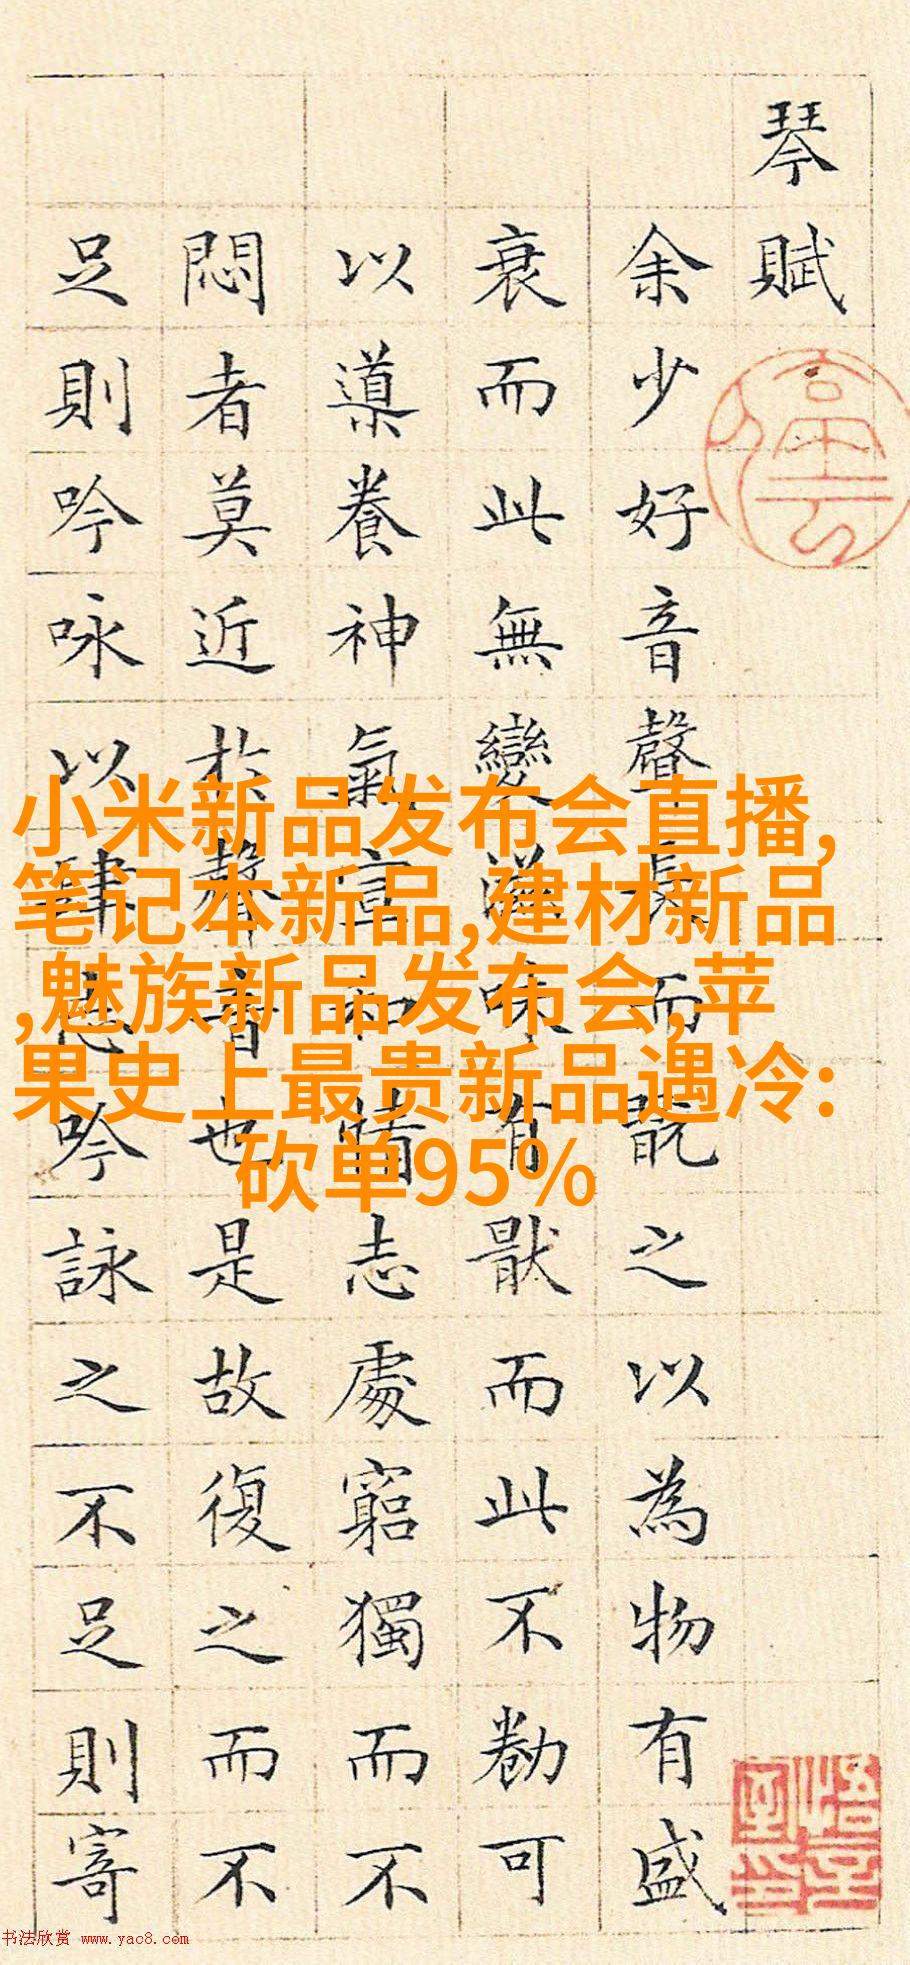 琴賦
余少好音聲長而翫之以為物有盛
衰而此無變滋味有猒而此不勌可
以導養神氣宣和情志處窮獨而不
悶者莫近於聲音也是故復之而不
足則吟咏以肆志吟詠之不足則寄
小米新品发布会直播,
笔记本新品,建材新品
,魅族新品发布会,苹
果史上最贵新品遇冷:
砍单95%
书法欣赏 www.yac8.com